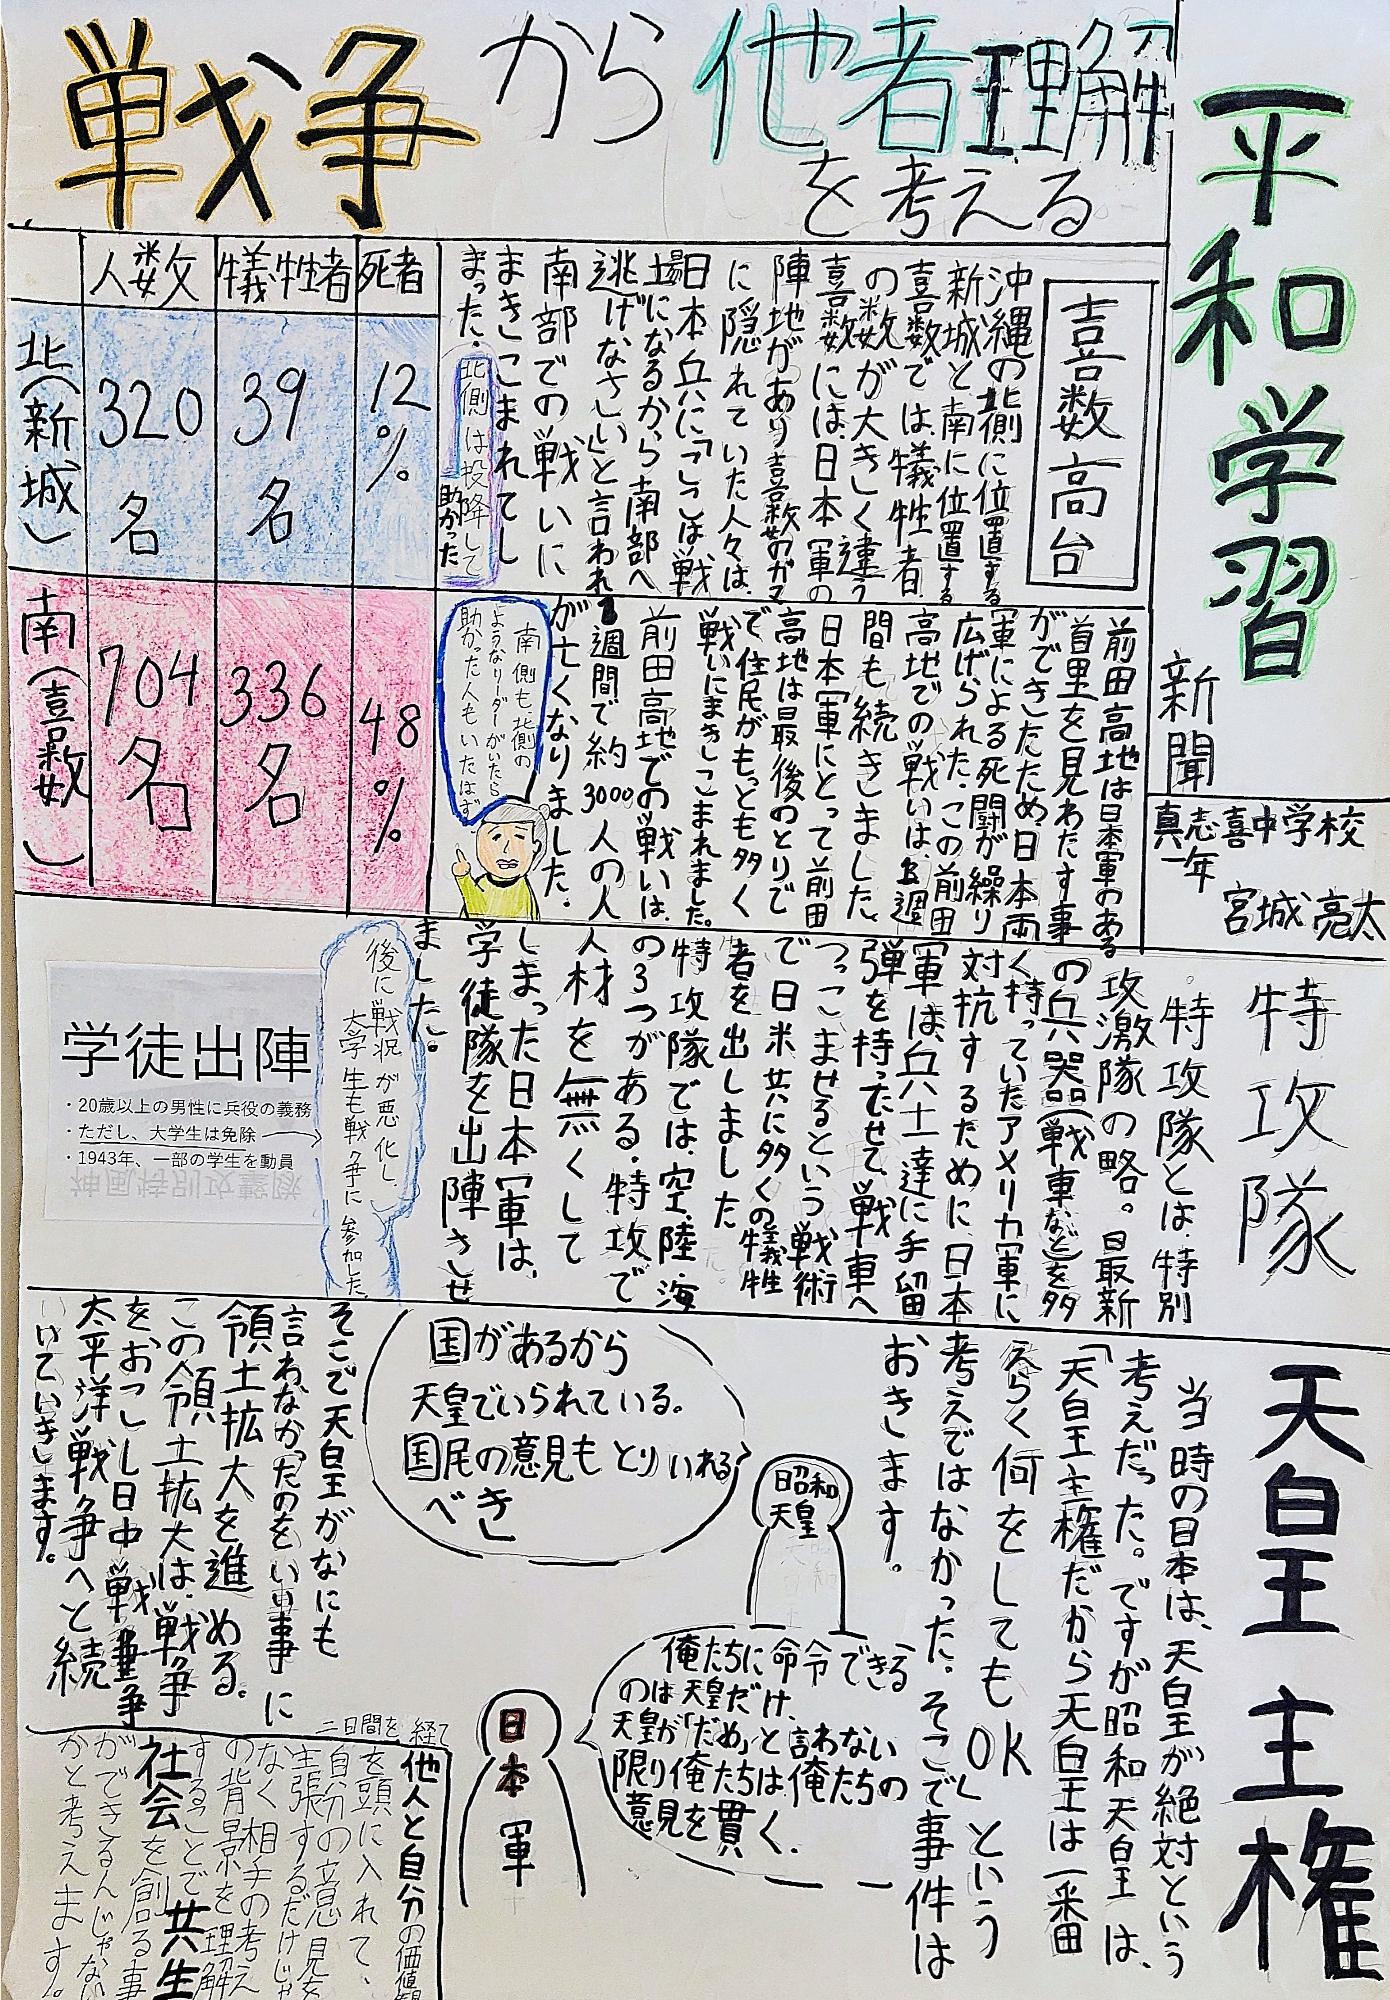 平和学習
新聞
真志喜中学校
一年
宮城亮太
戦争から他者理解
を考える
嘉数高台
沖縄の北側に位置する
新城と南に位置する
喜数では、犠牲者
の数が大きく違う
喜数には、日本軍の
陣地があり喜数のガマ
に隠れていた人々は、
日本兵に「ここは戦
場になるから南部へ
逃げなさい」と言われ
南部での戦いに
まきこまれてし
まった。
北側は投降して
助かった
人数
犠牲者
死者
北(新城)
320名
39名
12%
南(喜数)
704名
336名
48%
前田高地は日本軍のある
首里を見わたす事
ができたため日本両
軍による死闘が繰り
広げられた。この前田
高地での戦いは、2週
間も続きました。
日本軍にとって前田
高地は最後のとりで
で住民がもっとも多く
戦いにまきこまれました。
前田高地での戦いは、
1週間で約3000人の人
が亡くなりました。
南側も北側の
ようなリーダーがいたら
助かった人もいたはず
特攻隊
特攻隊とは、特別
攻激隊の略。日最新
の兵器(戦車など)を多
く持っていたアメリカ軍に
対抗するために、日本
軍は、兵士達に手留
弾を持たせて、戦車へ
つっこませるという戦術
で日米共に多くの犠牲
者を出しました
特攻隊では、空、陸、海
の3つがある。特攻で
人材を無くして
しまった日本軍は、
学徒隊を出陣させ
ました。
後に戦況が悪化し、
大学生も戦争に参加した。
学徒出陣
・20歳以上の男性に兵役の義務
・ただし、大学生は免除
・1943年、一部の学生を動員
天皇主権
当時の日本は、天皇が絶対という
考えだった。ですが昭和天皇は、
「天皇主権だから天皇は一番
えらく何をしてもOK」という
考えではなかった。そこで事件は
おきます。
昭和
天皇
国があるから
天皇でいられている。
国民の意見もとりいれる
べき
日本軍
俺たちに命令できる
のは天皇だけ、
天皇が「だめ」とは言わない
限り俺たちは俺たちの
意見を貫く.
そこで天皇がなにも
言わなかったのをいい事に
領土拡大を進める。
この領土拡大は、戦争
をおこし日中戦争
太平洋戦争へと続
いていきします。
二日間を経て
他人と自分の価値観
を頭に入れて、
自分の意見を
主張するだけじゃ
なく相手の考え
の背景を理解
することで共生
社会を創る事
ができるんじゃない
かと考えます。